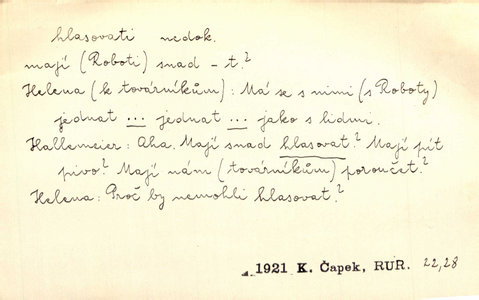 hlasovati nedok.
mají (Roboti) snad – t.?
Helena (k továrníkům): Má se s nimi (s Roboty)
jednat ... jednat ... jako s lidmi.
Hallemeier: Aha. Mají snad hlasovat? Mají pít
pivo? Mají nám (továrníkům) poroučet?
Helena: Proč by nemohli hlasovat?
1921 K. Čapek, RUR. 22,28